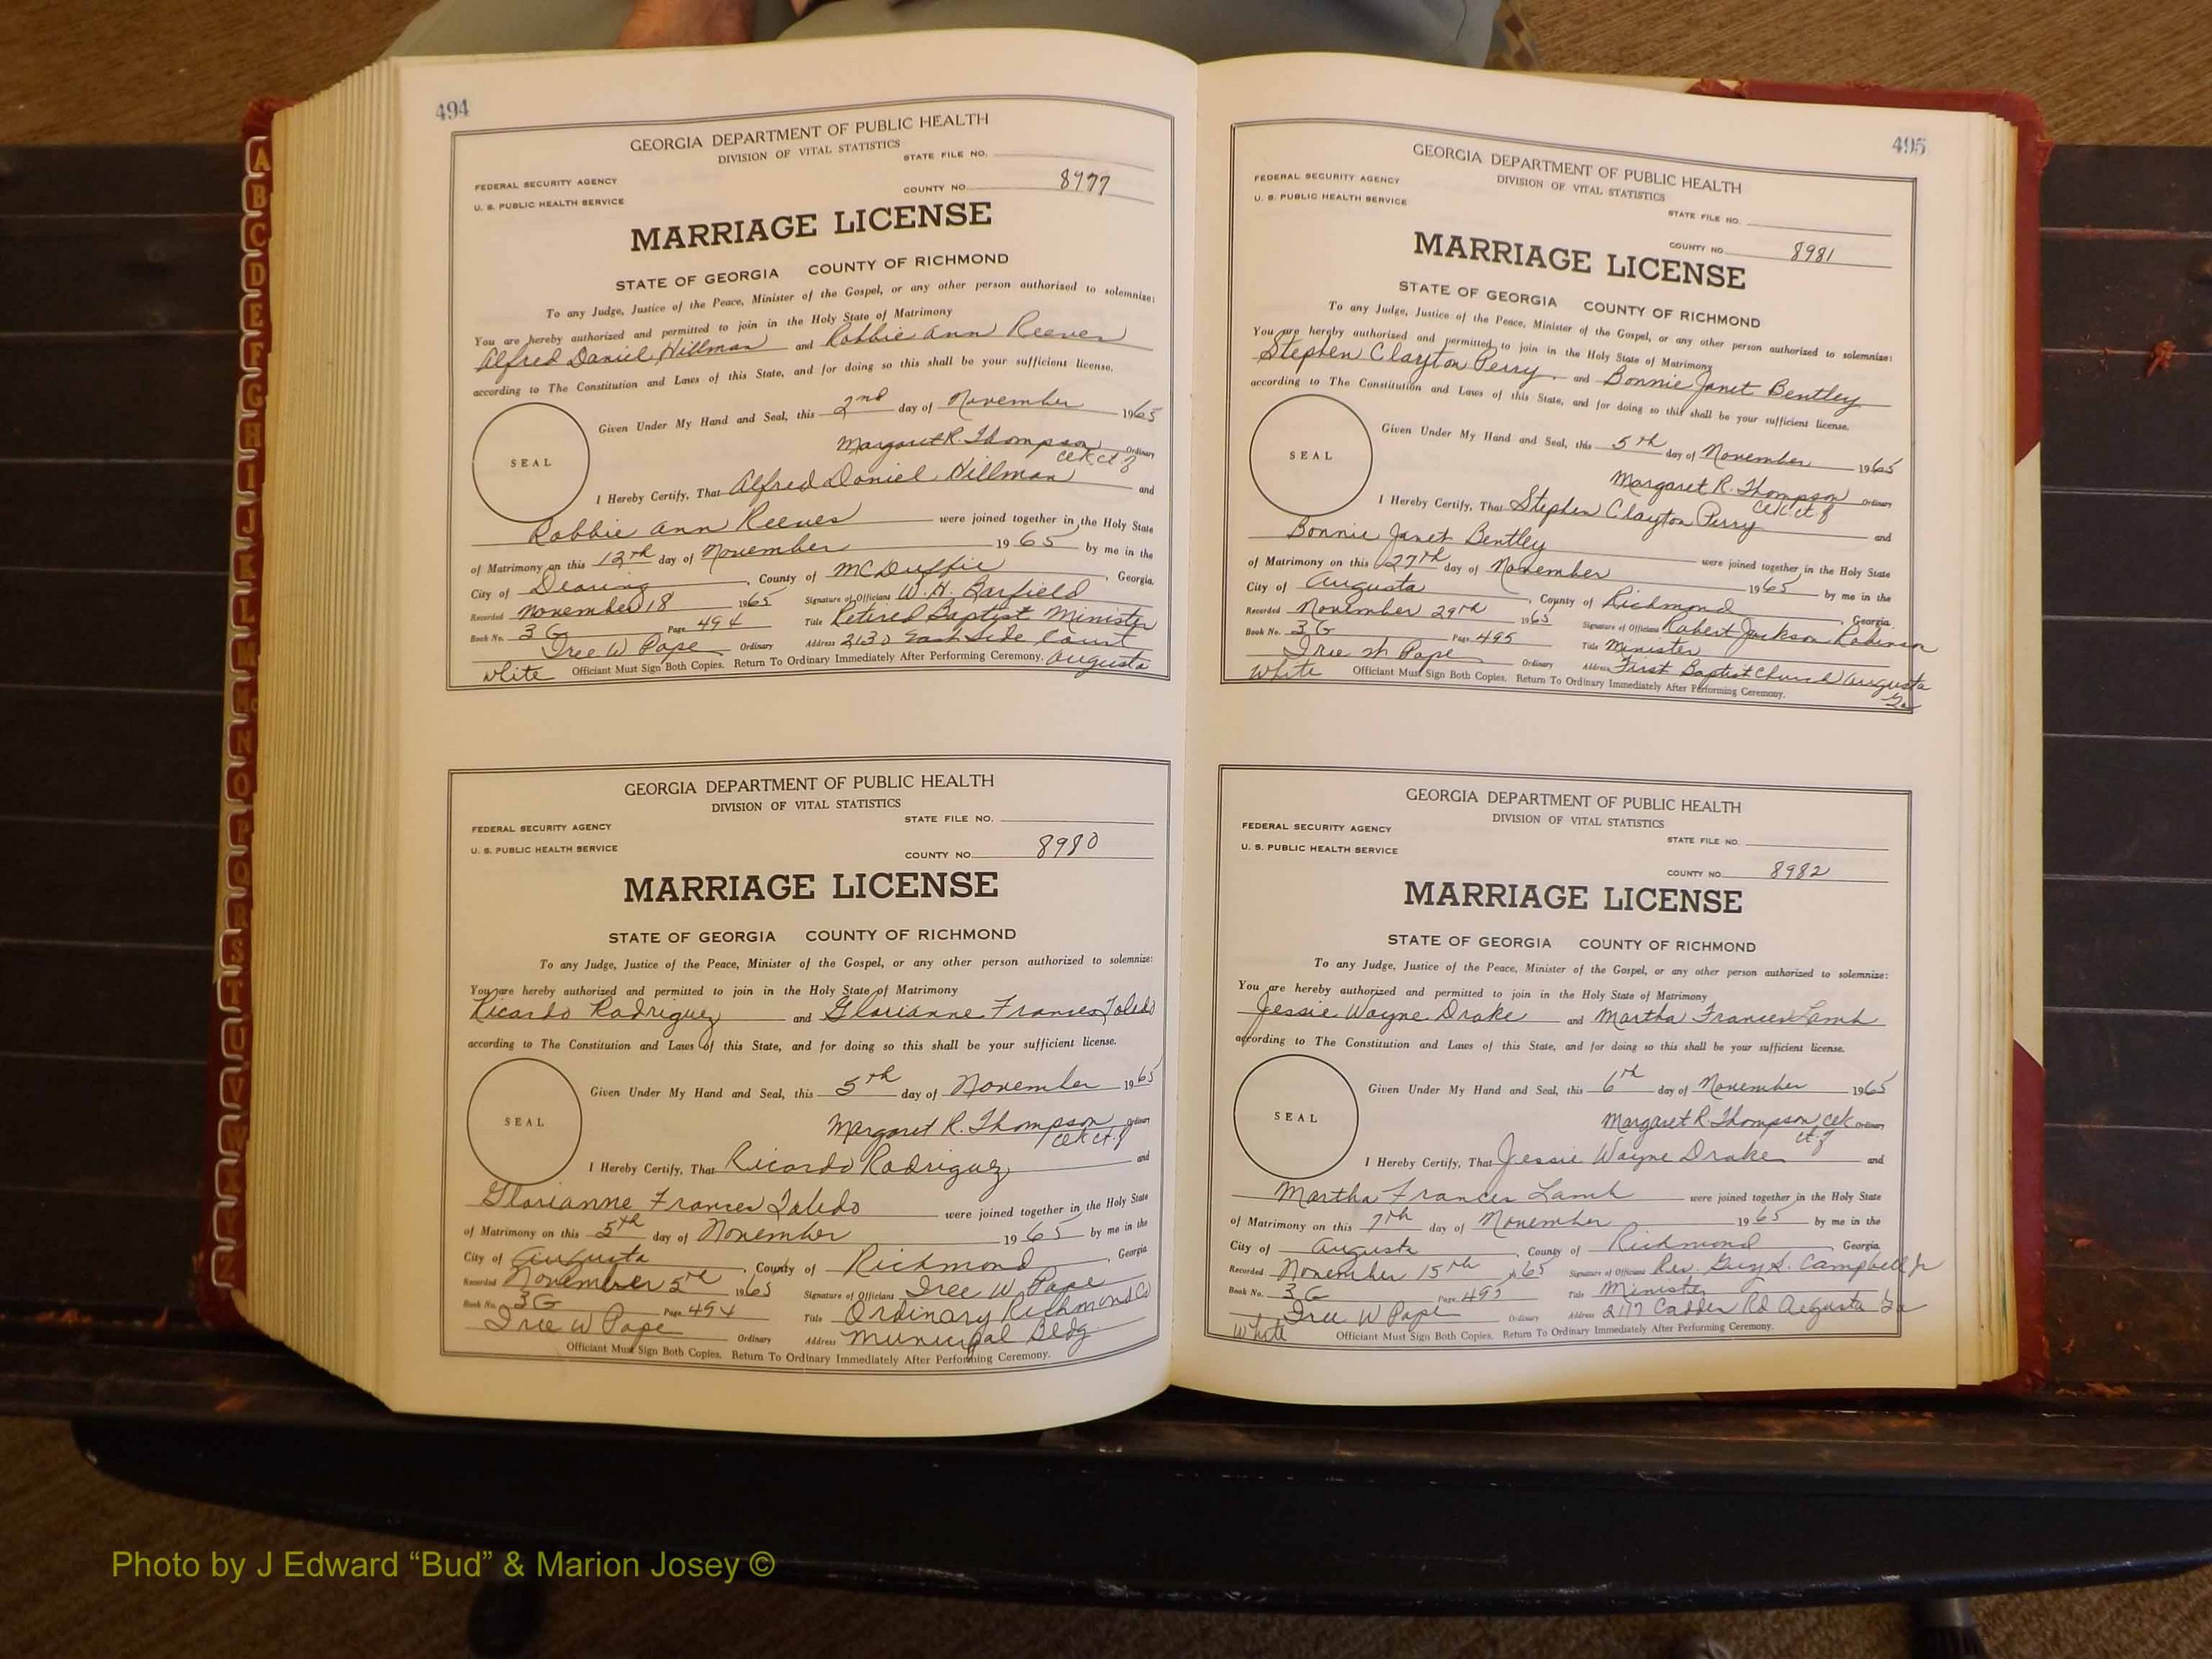 494
GEORGIA DEPARTMENT OF PUBLIC HEALTH
DIVISION OF VITAL STATISTICS
STATE FILE NO.
FEDERAL SECURITY AGENCY
U. S. PUBLIC HEALTH SERVICE
COUNTY NO. 8977
MARRIAGE LICENSE
STATE OF GEORGIA COUNTY OF RICHMOND
To any Judge, Justice of the Peace, Minister of the Gospel, or any other person authorized to solemnize:
You are hereby authorized and permitted to join in the Holy State of Matrimony
Alfred Daniel Hillman and Robbie Ann Reeves
according to The Constitution and Laws of this State, and for doing so this shall be your sufficient license.
Given Under My Hand and Seal, this 2nd day of November 1965
Margaret R. Thompson Ordinary
SEAL
I Hereby Certify, That Alfred Daniel Hillman and
Robbie Ann Reeves were joined together in the Holy State
of Matrimony on this 12th day of November 1965 by me in the
City of Dearing, County of McDuffie, Georgia.
Recorded November 18 1965 Signature of Officiant W. H. Barfield
Book No. 3G Page 494 Title Retired Baptist Minister
Ordinary Address 2130 East Side Court
White Officiant Must Sign Both Copies. Return To Ordinary Immediately After Performing Ceremony. Augusta
GEORGIA DEPARTMENT OF PUBLIC HEALTH
DIVISION OF VITAL STATISTICS
STATE FILE NO.
FEDERAL SECURITY AGENCY
U. S. PUBLIC HEALTH SERVICE
COUNTY NO. 8980
MARRIAGE LICENSE
STATE OF GEORGIA COUNTY OF RICHMOND
To any Judge, Justice of the Peace, Minister of the Gospel, or any other person authorized to solemnize:
You are hereby authorized and permitted to join in the Holy State of Matrimony
Ricardo Rodriguez and Glorianne Frances Toledo
according to The Constitution and Laws of this State, and for doing so this shall be your sufficient license.
Given Under My Hand and Seal, this 5th day of November 1965
Margaret R. Thompson Ordinary
SEAL
I Hereby Certify, That Ricardo Rodriguez and
Glorianne Frances Toledo were joined together in the Holy State
of Matrimony on this 5th day of November 1965 by me in the
City of Augusta, County of Richmond, Georgia
Recorded November 5 1965 Signature of Officiant W Pope
Book No. 3G Page 494 Title Ordinary Richmond Co
W Pope Ordinary Address Municipal Bldg.
Officiant Must Sign Both Copies. Return To Ordinary Immediately After Performing Ceremony.
495
GEORGIA DEPARTMENT OF PUBLIC HEALTH
DIVISION OF VITAL STATISTICS
STATE FILE NO.
FEDERAL SECURITY AGENCY
U. S. PUBLIC HEALTH SERVICE
COUNTY NO. 8981
MARRIAGE LICENSE
STATE OF GEORGIA COUNTY OF RICHMOND
To any Judge, Justice of the Peace, Minister of the Gospel, or any other person authorized to solemnize:
You are hereby authorized and permitted to join in the Holy State of Matrimony
Stephen Clayton Perry and Bonnie Janet Bentley
according to The Constitution and Laws of this State, and for doing so this shall be your sufficient license.
Given Under My Hand and Seal, this 5th day of November 1965
Margaret R. Thompson Ordinary
SEAL
I Hereby Certify, That Stephen Clayton Perry and
Bonnie Janet Bentley were joined together in the Holy State
of Matrimony on this 27th day of November 1965 by me in the
City of Augusta, County of Richmond, Georgia
Recorded November 29th 1965 Signature of Officiant Robert Jackson Robinson
Book No. 3G Page 495 Title Minister
Ordinary Address First Baptist Church Augusta
White Officiant Must Sign Both Copies. Return To Ordinary Immediately After Performing Ceremony. Ga
GEORGIA DEPARTMENT OF PUBLIC HEALTH
DIVISION OF VITAL STATISTICS
STATE FILE NO.
FEDERAL SECURITY AGENCY
U. S. PUBLIC HEALTH SERVICE
COUNTY NO. 8982
MARRIAGE LICENSE
STATE OF GEORGIA COUNTY OF RICHMOND
To any Judge, Justice of the Peace, Minister of the Gospel, or any other person authorized to solemnize:
You are hereby authorized and permitted to join in the Holy State of Matrimony
Jessie Wayne Drake and Martha Frances Lamb
according to The Constitution and Laws of this State, and for doing so this shall be your sufficient license.
Given Under My Hand and Seal, this 6th day of November 1965
Margaret R. Thompson Ordinary
SEAL
I Hereby Certify, That Jessie Wayne Drake and
Martha Frances Lamb were joined together in the Holy State
of Matrimony on this 7th day of November 1965 by me in the
City of Augusta, County of Richmond, Georgia
Recorded November 15th 1965 Signature of Officiant Rev. Guy S. Campbell Jr
Book No. 3G Page 495 Title Minister
W Pope Ordinary Address 2117 Rd Augusta Ga
White Officiant Must Sign Both Copies. Return To Ordinary Immediately After Performing Ceremony.
A
B
C
D
E
F
G
H
I
J
K
L
M
Mc
N
O
P
Q
R
S
T
U
V
W
X
Y
Z
Photo by J Edward “Bud” & Marion Josey ©